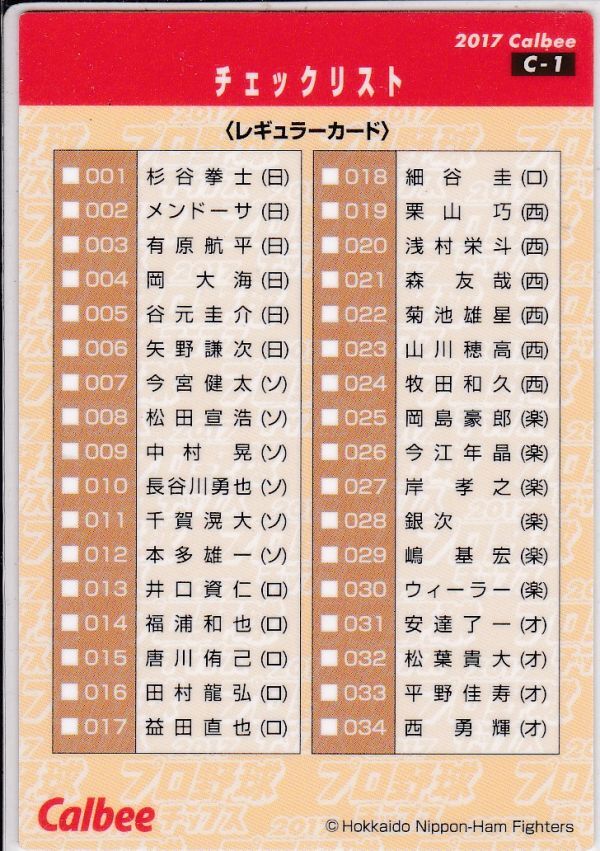 2017 Calbee
C-1
チェックリスト
〈レギュラーカード〉
001 杉谷拳士(日)
002 メンドーサ(日)
003 有原航平(日)
004 岡大海(日)
005 谷元圭介(日)
006 矢野謙次(日)
007 今宮健太(ソ)
008 松田宣浩(ソ)
009 中村晃(ソ)
010 長谷川勇也(ソ)
011 千賀滉大(ソ)
012 本多雄一(ソ)
013 井口資仁(ロ)
014 福浦和也(ロ)
015 唐川侑己(ロ)
016 田村龍弘(ロ)
017 益田直也(ロ)
018 細谷圭(ロ)
019 栗山巧(西)
020 浅村栄斗(西)
021 森友哉(西)
022 菊池雄星(西)
023 山川穂高(西)
024 牧田和久(西)
025 岡島豪郎(楽)
026 今江年晶(楽)
027 岸孝之(楽)
028 銀次(楽)
029 嶋基宏(楽)
030 ウィーラー(楽)
031 安達了一(オ)
032 松葉貴大(オ)
033 平野佳寿(オ)
034 西勇輝(オ)
Calbee
©Hokkaido Nippon-Ham Fighters